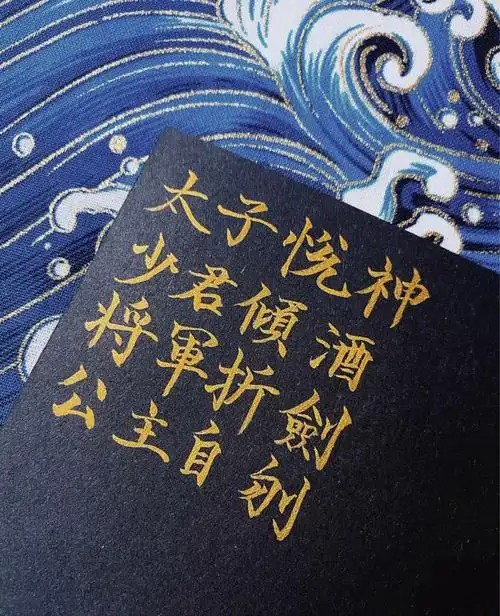 太子悅神
少君傾酒
将軍折劍
公主自刎